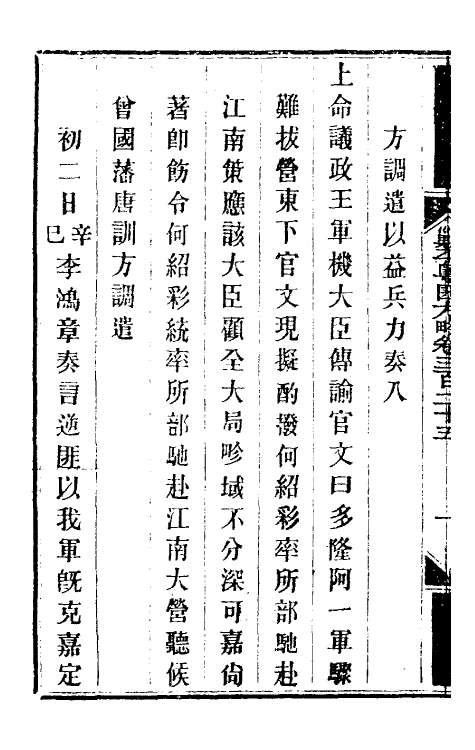 方調遣以益兵力奏入
上命議政王軍機大臣傳諭官文曰多隆阿一軍驟
難拔營東下官文現擬酌撥何紹彩率所部馳赴
江南策應該大臣顧全大局畛域不分深可嘉尙
著卽飭令何紹彩統率所部馳赴江南大營聽候
曾國藩唐訓方調遣
初二日辛巳李鴻章奏言逆匪以我軍旣克嘉定